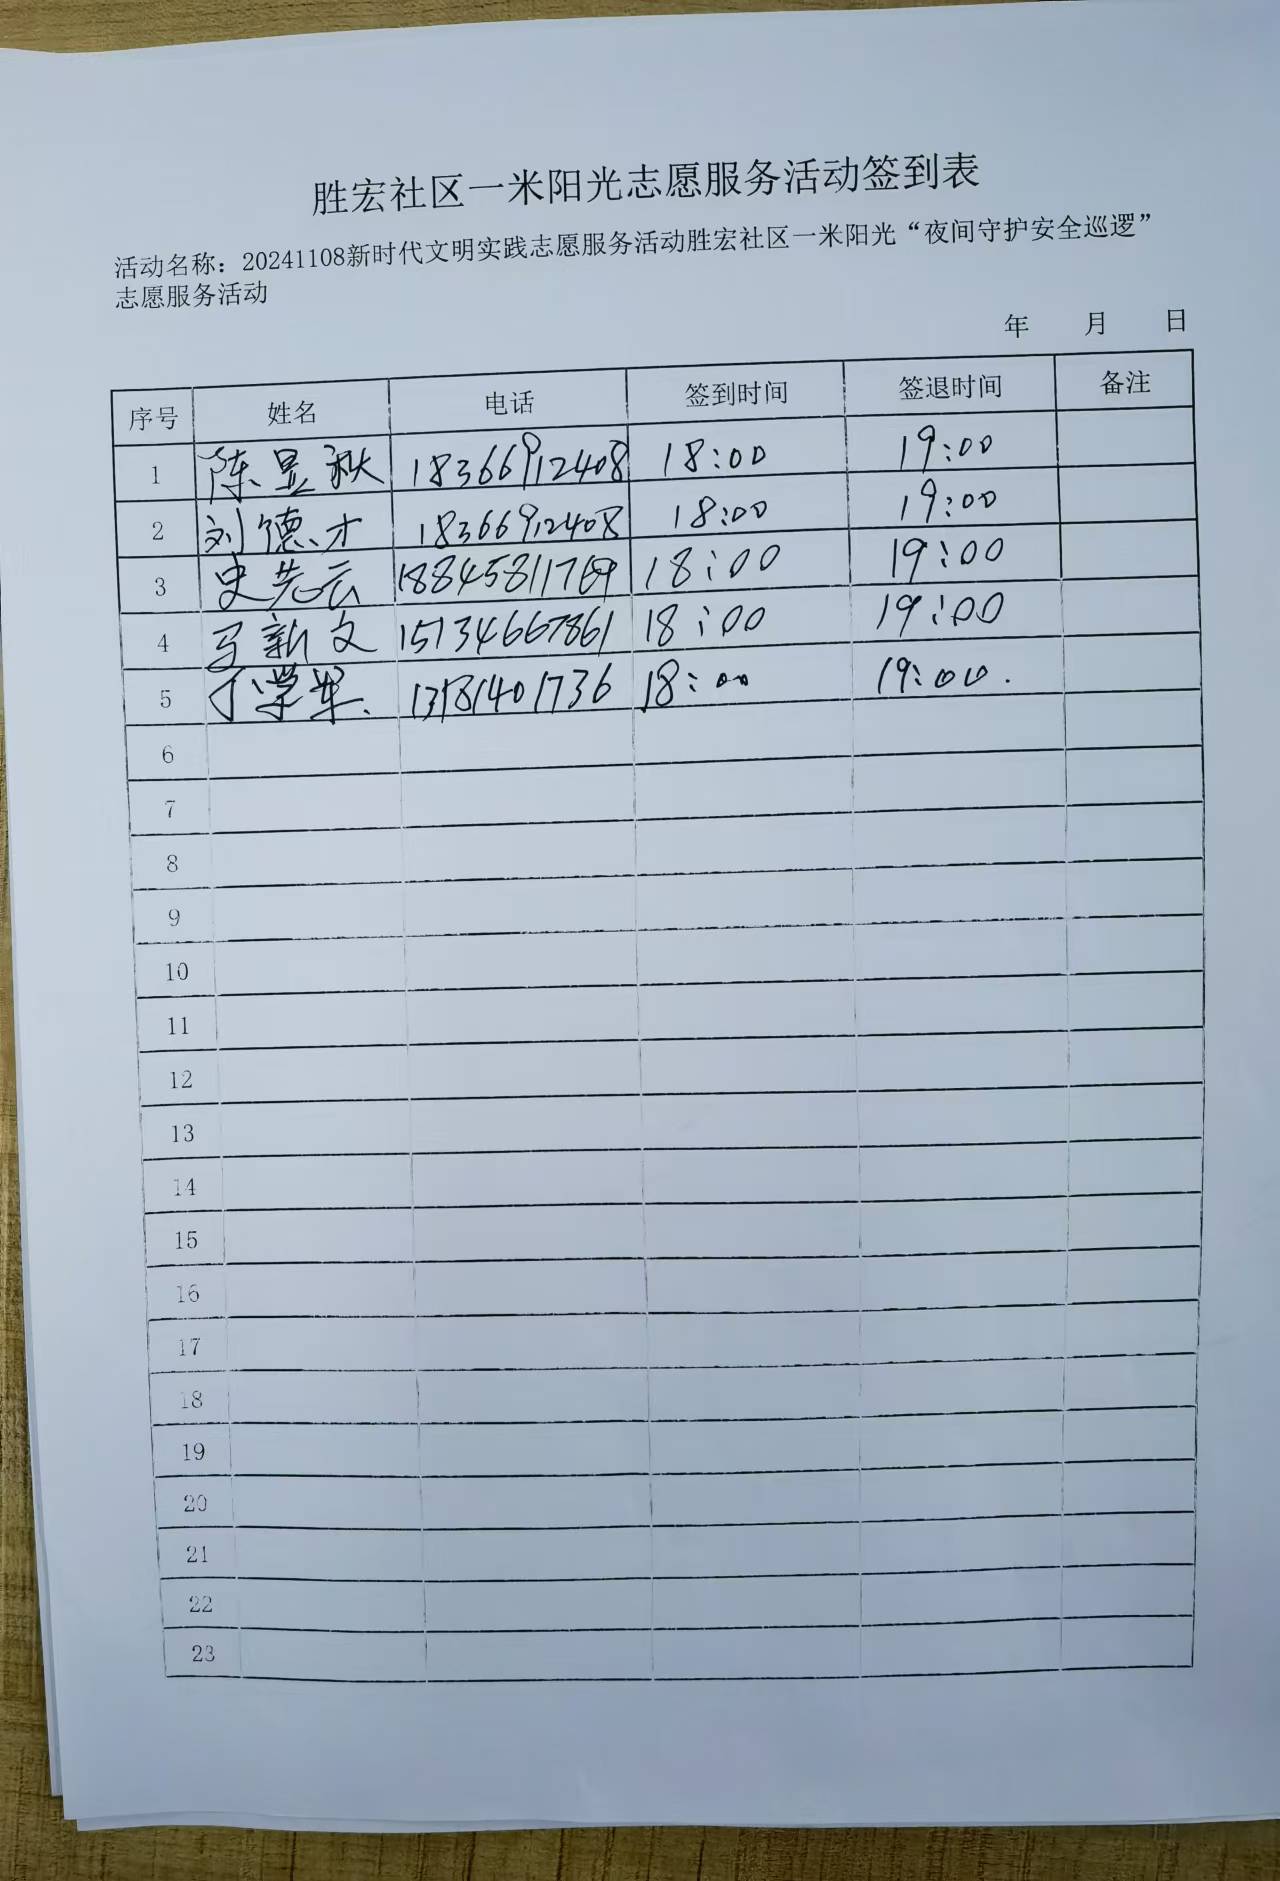 胜宏社区一米阳光志愿服务活动签到表
活动名称：20241108新时代文明实践志愿服务活动胜宏社区一米阳光“夜间守护安全巡逻”
志愿服务活动
年 月 日
序号 姓名 电话 签到时间 签退时间 备注
1 陈昱秋 18366912408 18:00 19:00
2 刘德才 18366912408 18:00 19:00
3 史先云 18845811769 18:00 19:00
4 马新文 15134667861 18:00 19:00
5 丁学 13181401736 18:00 19:00.
6
7
8
9
10
11
12
13
14
15
16
17
18
19
20
21
22
23